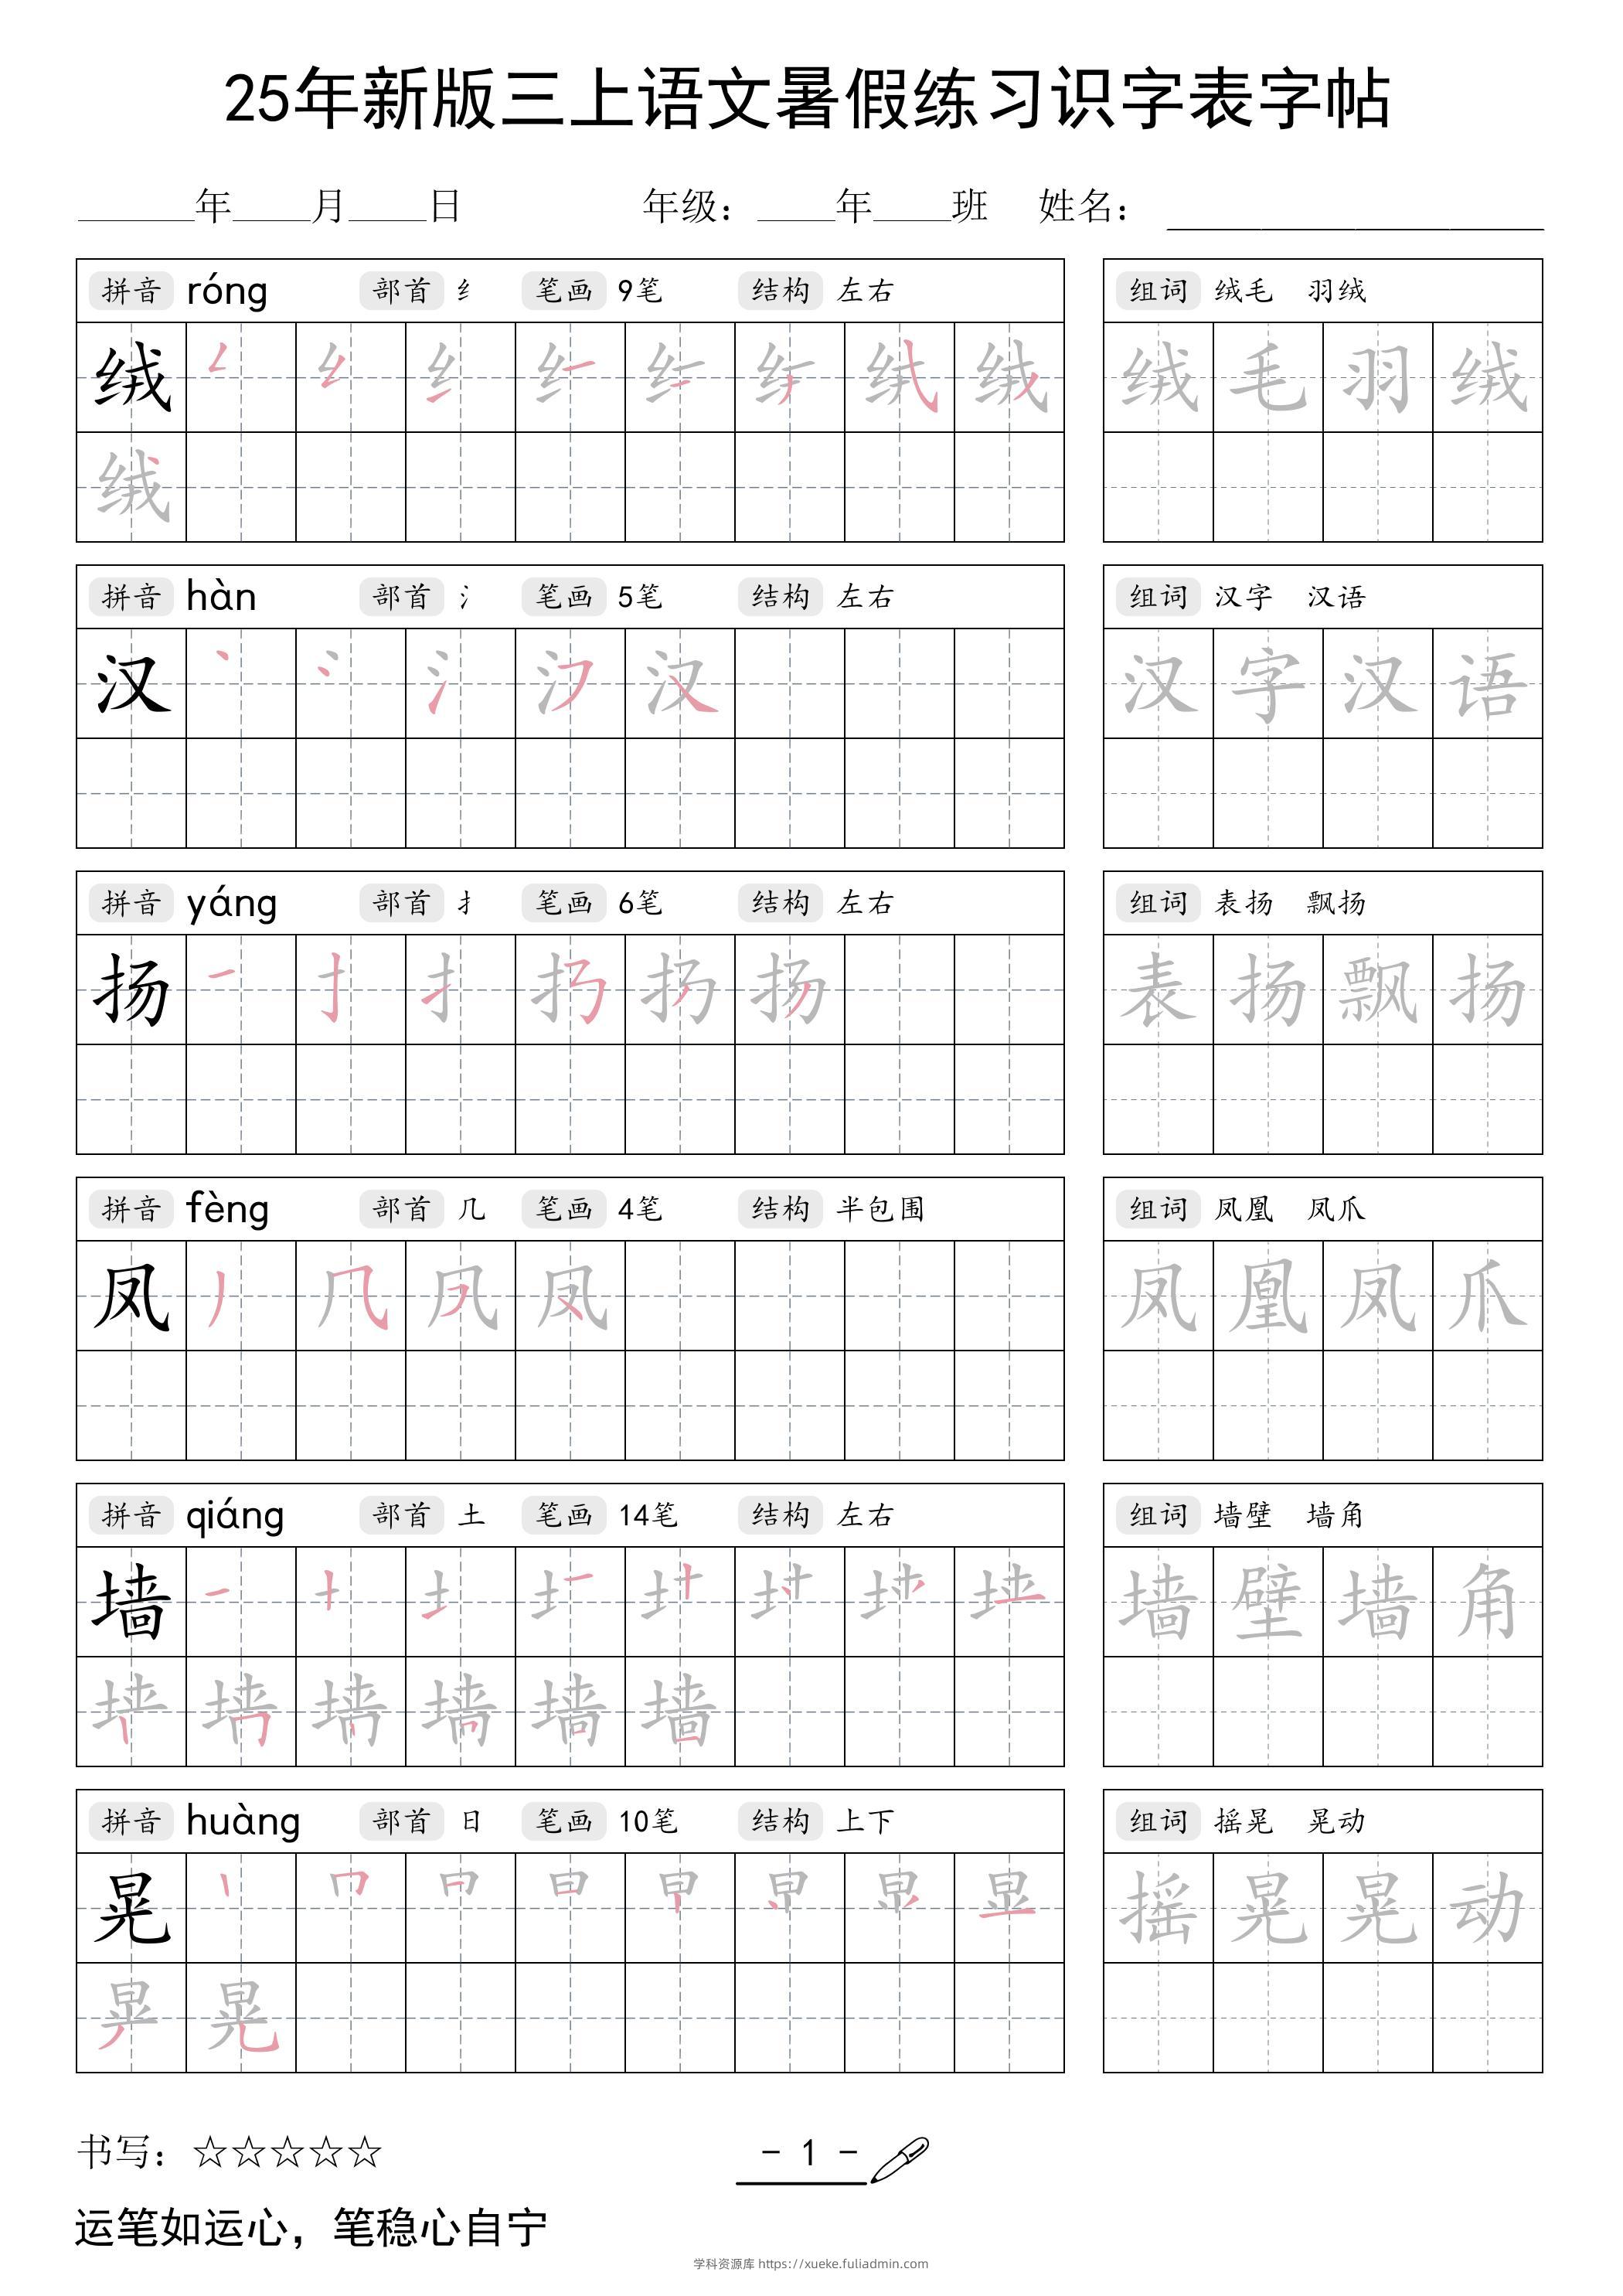 25年新版三上语文暑假练习识字表字帖
______年____月____日 年级：____年____班 姓名：
拼音 róng 部首 纟 笔画 9笔 结构 左右 组词 绒毛 羽绒
绒 绒 毛 羽 绒
绒
拼音 hàn 部首 氵 笔画 5笔 结构 左右 组词 汉字 汉语
汉 汉 汉 字 汉 语
拼音 yáng 部首 扌 笔画 6笔 结构 左右 组词 表扬 飘扬
扬 扬 表 扬 飘 扬
拼音 fèng 部首 几 笔画 4笔 结构 半包围 组词 凤凰 凤爪
凤 凤 凤 凰 凤 爪
拼音 qiáng 部首 土 笔画 14笔 结构 左右 组词 墙壁 墙角
墙 墙 壁 墙 角
墙
拼音 huàng 部首 日 笔画 10笔 结构 上下 组词 摇晃 晃动
晃 摇 晃 晃 动
晃
书写：☆☆☆☆☆
- 1 -
运笔如运心，笔稳心自宁
学科资源库 https://xueke.fuliadmin.com